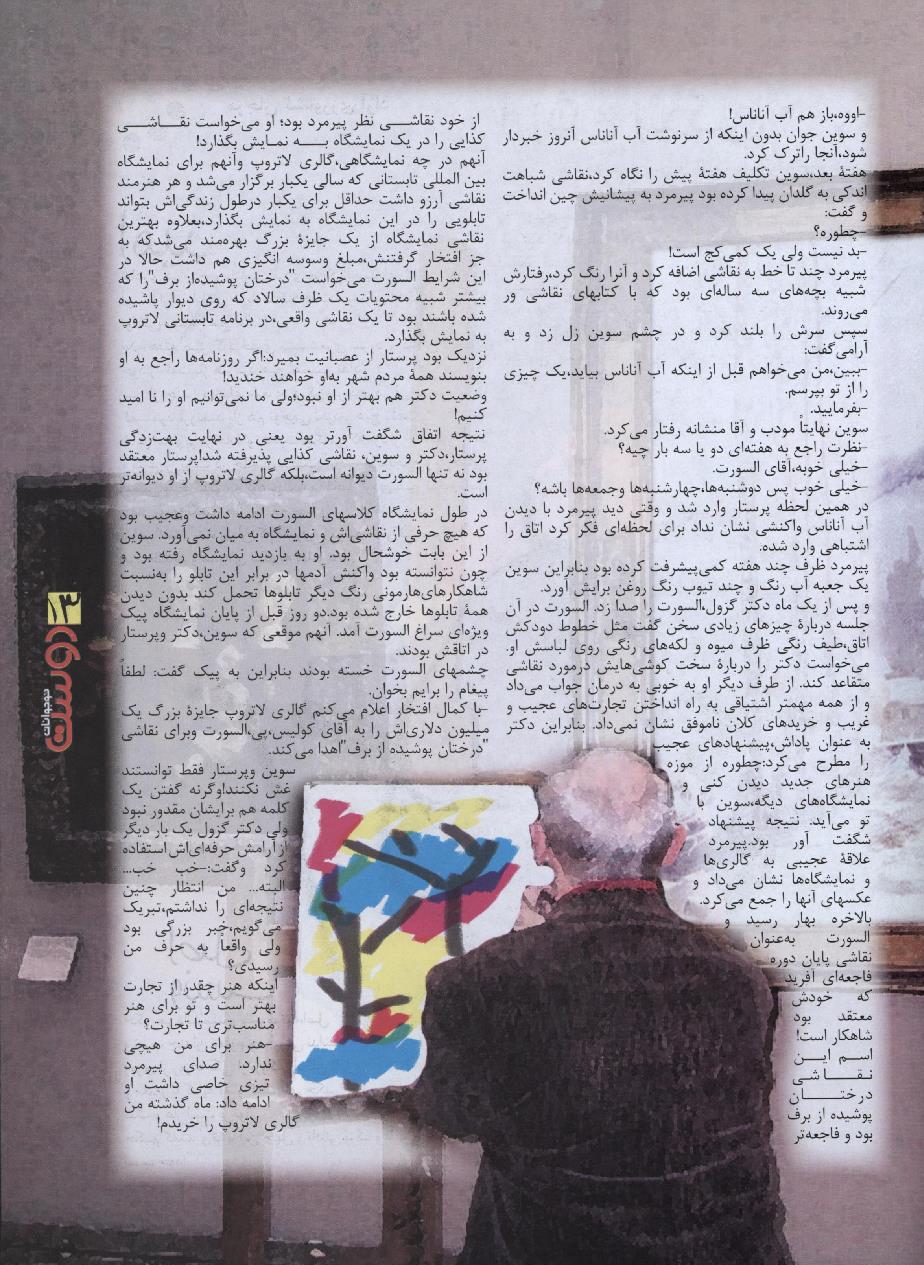 -اووه،باز هم آب آناناس!
و سوین جوان بدون اینکه از سرنوشت آب آناناس آنروز خبردار
شود،آنجا راترک کرد.
هفتهٔ بعد،سوین تکلیف هفتهٔ پیش را نگاه کرد،نقاشی شباهت
اندکی به گلدان پیدا کرده بود پیرمرد به پیشانیش چین انداخت
و گفت:
-چطوره؟
-بد نیست ولی یک کمی‌کج است!
پیرمرد چند تا خط به نقاشی اضافه کرد و آنرا رنگ کرد،رفتارش
شبیه بچه‌های سه ساله‌ای بود که با کتابهای نقاشی ور
می‌روند.
سپس سرش را بلند کرد و در چشم سوین زل زد و به
آرامی‌گفت:
-ببین،من می‌خواهم قبل از اینکه آب آناناس بیاید،یک چیزی
را از تو بپرسم.
-بفرمایید.
سوین نهایتاً مودب و آقا منشانه رفتار می‌کرد.
-نظرت راجع به هفته‌ای دو یا سه بار چیه؟
-خیلی خوبه،آقای السورت.
-خیلی خوب پس دوشنبه‌ها،چهارشنبه‌ها وجمعه‌ها باشه؟
در همین لحظه پرستار وارد شد و وقتی دید پیرمرد با دیدن
آب آناناس واکنشی نشان نداد برای لحظه‌ای فکر کرد اتاق را
اشتباهی وارد شده.
پیرمرد ظرف چند هفته کمی‌پیشرفت کرده بود بنابراین سوین
یک جعبه آب رنگ و چند تیوب رنگ روغن برایش آورد.
و پس از یک ماه دکتر گزول،السورت را صدا زد. السورت در آن
جلسه دربارهٔ چیزهای زیادی سخن گفت مثل خطوط دودکش
اتاق،طیف رنگی ظرف میوه و لکه‌های رنگی روی لباسش او.
می‌خواست دکتر را دربارهٔ سخت کوشی‌هایش درمورد نقاشی
متقاعد کند. از طرف دیگر او به خوبی به درمان جواب می‌داد
و از همه مهمتر اشتیاقی به راه انداختن تجارت‌های عجیب و
غریب و خریدهای کلان ناموفق نشان نمی‌داد. بنابراین دکتر
به عنوان پاداش،پیشنهادهای عجیب
را مطرح می‌کرد:چطوره از موزه
هنرهای جدید دیدن کنی و
نمایشگاه‌های دیگه،سوین با
تو می‌آید. نتیجه پیشنهاد
شگفت آور بود.پیرمرد
علاقهٔ عجیبی به گالری‌ها
و نمایشگاه‌ها نشان می‌داد و
عکسهای آنها را جمع می‌کرد.
بالاخره بهار رسید و
السورت به‌عنوان
نقاشی پایان دوره
فاجعه‌ای آفرید
که خودش
معتقد بود
شاهکار است!
اسم این
نقاشی
درختان
پوشیده از برف
بود و فاجعه‌تر
از خود نقاشی نظر پیرمرد بود؛ او می‌خواست نقاشی
کذایی را در یک نمایشگاه به نمایش بگذارد!
آنهم در چه نمایشگاهی،گالری لاتروپ وآنهم برای نمایشگاه
بین المللی تابستانی که سالی یکبار برگزار می‌شد و هر هنرمند
نقاشی آرزو داشت حداقل برای یکبار درطول زندگی‌اش بتواند
تابلویی را در این نمایشگاه به نمایش بگذارد،بعلاوه بهترین
نقاشی نمایشگاه از یک جایزهٔ بزرگ بهره‌مند می‌شدکه به
جز افتخار گرفتنش،مبلغ وسوسه انگیزی هم داشت حالا در
این شرایط السورت می‌خواست "درختان پوشیده‌از برف"را که
بیشتر شبیه محتویات یک ظرف سالاد که روی دیوار پاشیده
شده باشند بود تا یک نقاشی واقعی،در برنامه تابستانی لاتروپ
به نمایش بگذارد.
نزدیک بود پرستار از عصبانیت بمیرد:اگر روزنامه‌ها راجع به او
بنویسند همهٔ مردم شهر به‌او خواهند خندید!
وضعیت دکتر هم بهتر از او نبود؛ولی ما نمی‌توانیم او را نا امید
کنیم!
نتیجه اتفاق شگفت آورتر بود یعنی در نهایت بهت‌زدگی
پرستار،دکتر و سوین، نقاشی کذایی پذیرفته شد!پرستار معتقد
بود نه تنها السورت دیوانه است،بلکه گالری لاتروپ از او دیوانه‌تر
است.
در طول نمایشگاه کلاسهای السورت ادامه داشت وعجیب بود
که هیچ حرفی از نقاشی‌اش و نمایشگاه به میان نمی‌آورد. سوین
از این بابت خوشحال بود. او به بازدید نمایشگاه رفته بود و
چون نتوانسته بود واکنش آدمها در برابر این تابلو را به‌نسبت
شاهکارهای‌هارمونی رنگ دیگر تابلوها تحمل کند بدون دیدن
همهٔ تابلوها خارج شده بود.دو روز قبل از پایان نمایشگاه پیک
ویژه‌ای سراغ السورت آمد. آنهم موقعی که سوین،دکتر وپرستار
در اتاقش بودند.
چشمهای السورت خسته بودند بنابراین به پیک گفت: لطفاً
پیغام را برایم بخوان.
-با کمال افتخار اعلام می‌کنم گالری لاتروپ جایزهٔ بزرگ یک
میلیون دلاری‌اش را به آقای کولیس،پی،السورت وبرای نقاشی
"درختان پوشیده از برف"اهدا می‌کند.
سوین وپرستار فقط توانستند
غش نکننداوگرنه گفتن یک
کلمه هم برایشان مقدور نبود
ولی دکتر گزول یک بار دیگر
ازآرامش حرفه‌ای‌اش استفاده
کرد وگفت:-خب خب...
البته... من انتظار چنین
نتیجه‌ای را نداشتم،تبریک
می‌گویم،خبر بزرگی بود
ولی واقعا به حرف من
رسیدی؟
اینکه هنر چقدر از تجارت
بهتر است و تو برای هنر
مناسب‌تری تا تجارت؟
-هنر برای من هیچی
ندارد. صدای پیرمرد
تیزی خاصی داشت او
ادامه داد: ماه گذشته من
گالری لاتروپ را خریدم!
۱۳
دوست
نوجوانان